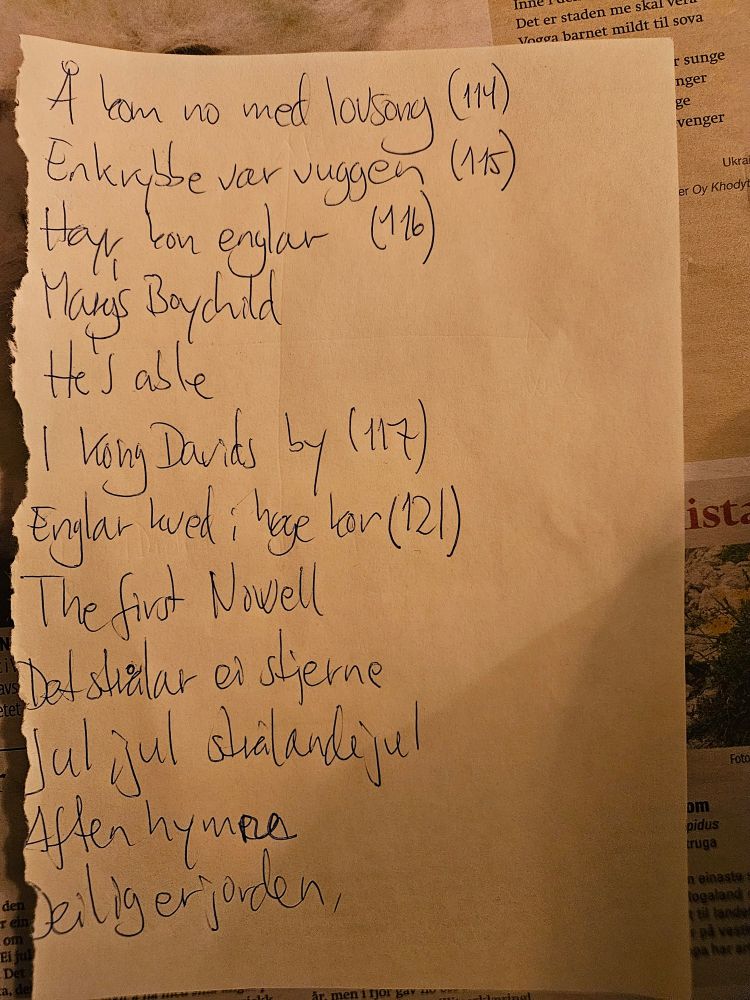 Inne i
Det er staden me skal vera
Vogga barnet mildt til sova
sunge
nger
ge
venger
Ukrai
er Oy Khodyt
Å kom no med lovsong (114)
En krybbe var vuggen (115)
Høyr, kor englar (116)
Marys Boychild
He's able
I kong Davids by (117)
Englar kved i høge kor (121)
The first Nowell
Det strålar ei stjerne
Jul, jul strålande jul
Aften hymne
Deilig er jorden,
ista
Foto
om
pidus
truga
n einaste
logaland
t til lande
r på vest
opa har a
den
er ein
om
Ei jul
Det
ta, de
år, men i fjor gav